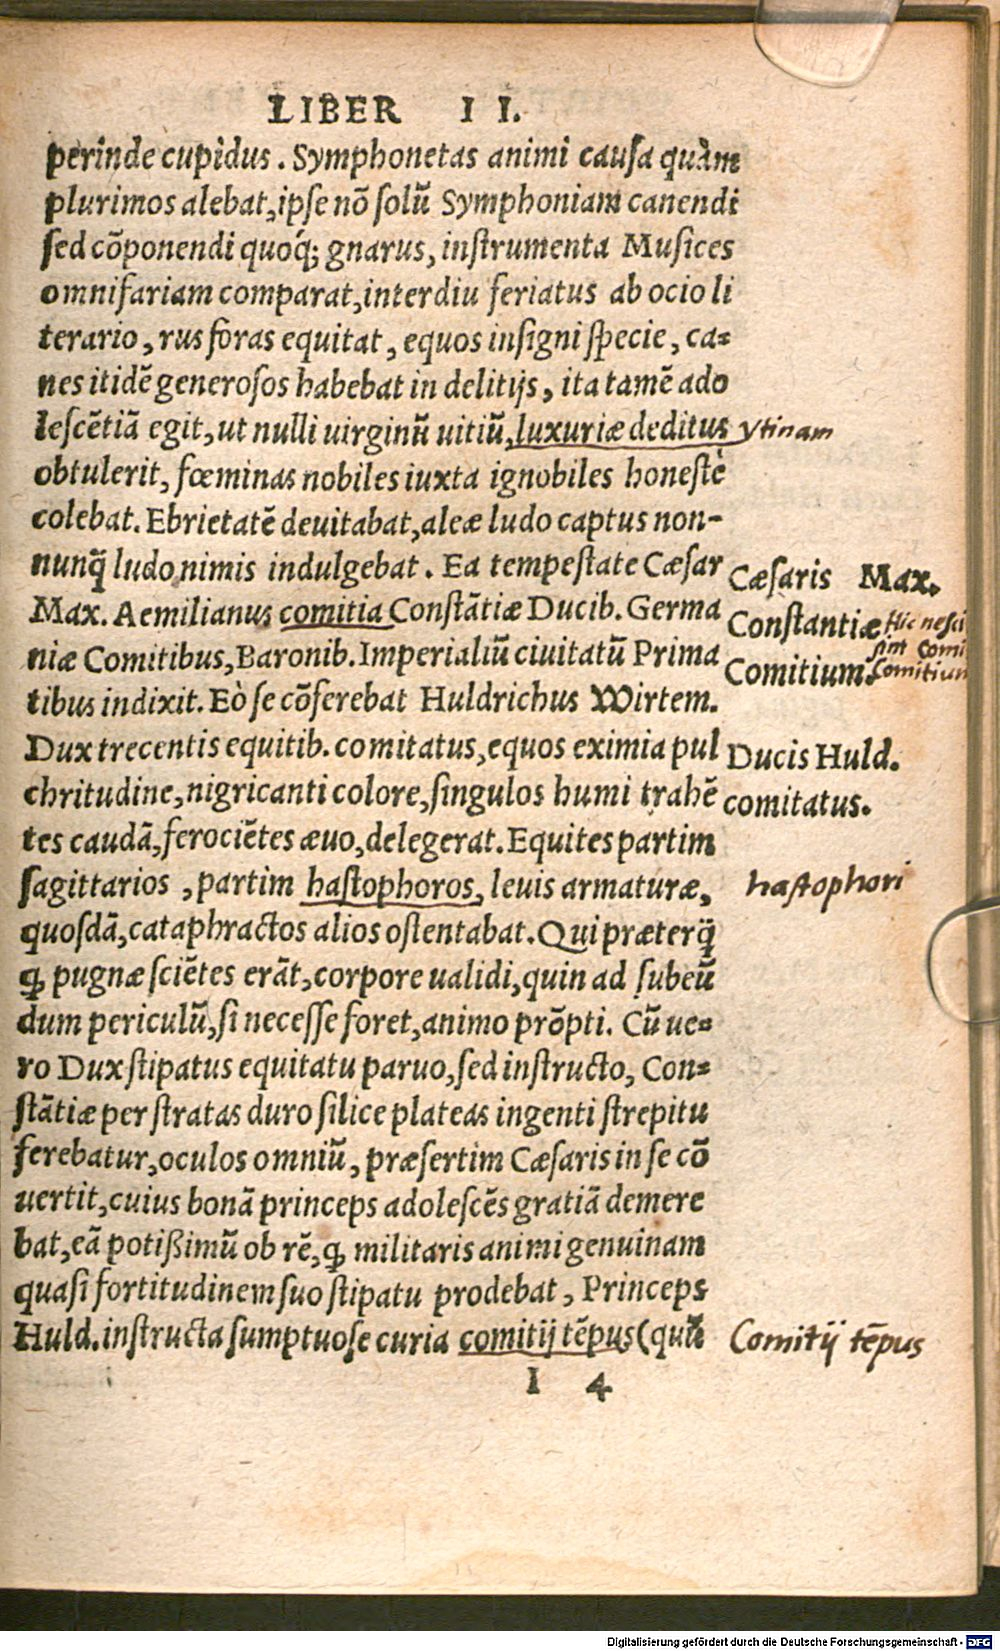 LIBER II.
perinde cupidus. Symphonetas animi causa quàm
plurimos alebat, ipse nõ solũ Symphoniam canendi
sed cõponendi quoq́; gnarus, instrumenta Musices
omnifariam comparat, interdiu feriatus ab ocio li
terario, rus foras equitat, equos insigni specie, ca=
nes itidẽ generosos habebat in delitijs, ita tamẽ ado
lescẽtiã egit, ut nulli uirginũ uitiũ, luxuriæ deditus
Vtinam
obtulerit, fœminas nobiles iuxta ignobiles honestè
colebat. Ebrietatẽ deuitabat, aleæ ludo captus non-
nunq̃ ludo nimis indulgebat. Ea tempestate Cæsar
Cæsaris Max.
Max. Aemilianus comitia Constãtiæ Ducib. Germa
Constantiæ
Hic nesci
niæ Comitibus, Baronib. Imperialiũ ciuitatũ Prima
Comitium.
sint Comi
Comitium
tibus indixit. Eò se cõferebat Huldrichus Wirtem.
Dux trecentis equitib. comitatus, equos eximia pul
Ducis Huld.
chritudine, nigricanti colore, singulos humi trahẽ
comitatus.
tes caudã, ferociẽtes æuo, delegerat. Equites partim
sagittarios, partim hastophoros, leuis armaturæ,
hastophori
quosdã, cataphractos alios ostentabat. Qui præterq̃
ꝙ pugnæ sciẽtes erãt, corpore ualidi, quin ad subeũ
dum periculũ, si necesse foret, animo prõpti. Cũ ue=
ro Dux stipatus equitatu paruo, sed instructo, Con=
stãtiæ per stratas duro silice plateas ingenti strepitu
ferebatur, oculos omniũ, præsertim Cæsaris in se cõ
uertit, cuius bonã princeps adolescẽs gratiã demere
bat, eã potißimũ ob rẽ, ꝙ militaris animi genuinam
quasi fortitudinem suo stipatu prodebat, Princeps
Huld. instructa sumptuose curia comitij tẽpus (quũ
Comitij tẽpus
I 4
Digitalisierung gefördert durch die Deutsche Forschungsgemeinschaft - DFG